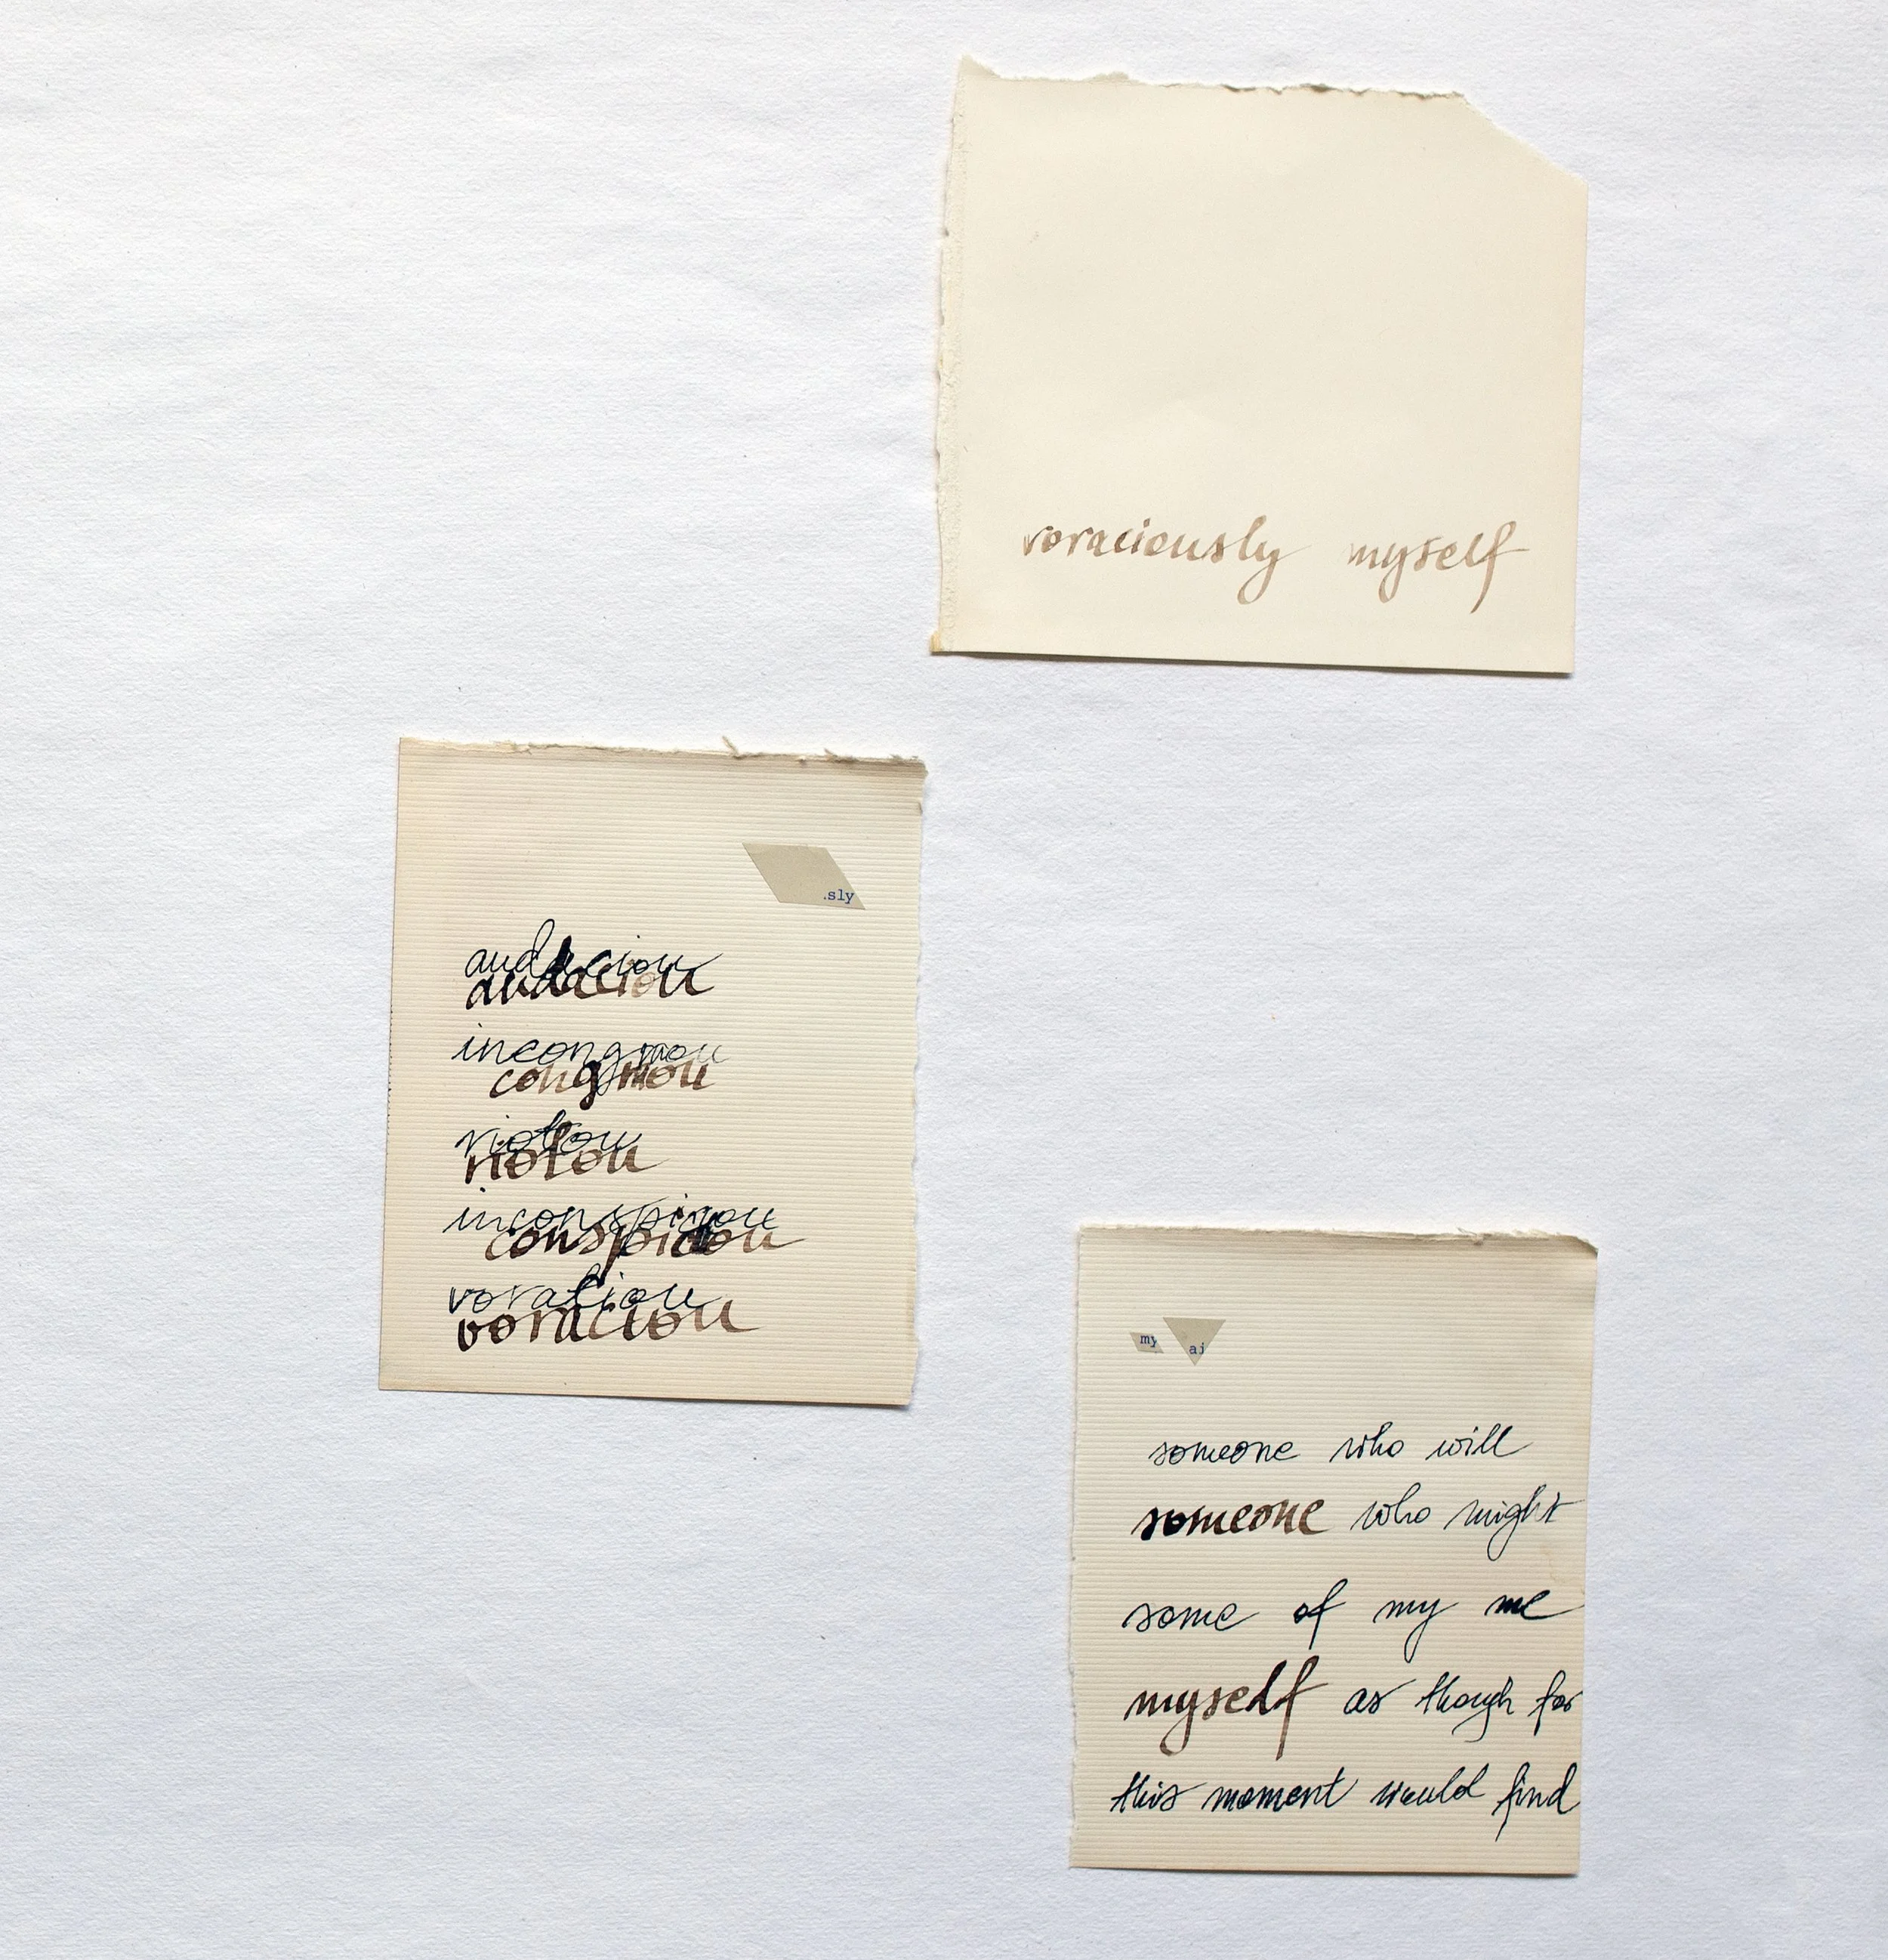 voraciously myself
.sly
audaciou
audaciou
incongruou
congruou
riotou
riotou
inconspicuou
conspicuou
voraciou
voraciou
my ai
someone who will
someone who might
some of my me
myself as though for
this moment would find